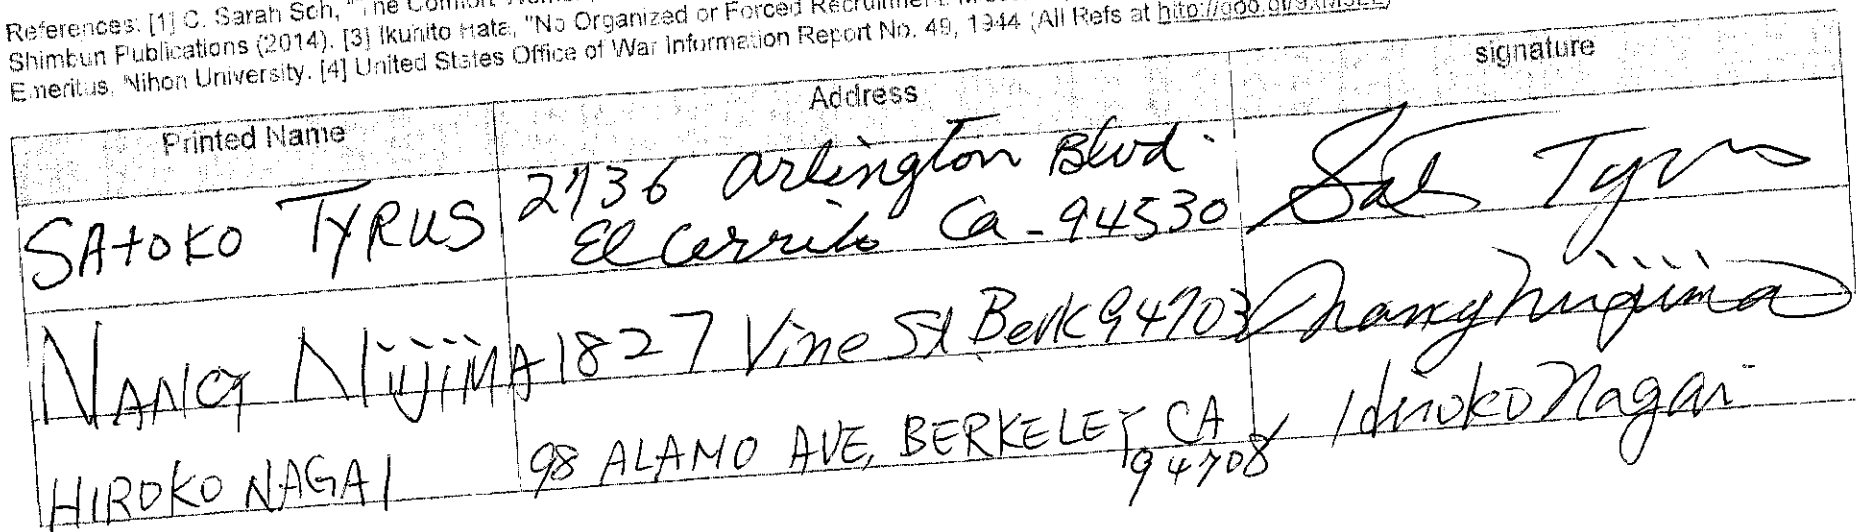 References: [1] C. Sarah Soh, "The Comfort
Shimbun Publications (2014). [3] Ikuhito Hata, "No Organized or Forced Recruitment:
Emeritus, Nihon University. [4] United States Office of War Information Report No. 49, 1944 (All Refs at
Printed Name Address signature
SATOKO TYRUS 2736 Arlington Blvd. Sat Tyrus
El Cerrito Ca - 94530
NANCY NIIJIMA 1827 Vine St Berk 94703 Nancy Niijima
HIROKO NAGAI 98 ALAMO AVE, BERKELEY CA Hiroko Nagai
94708